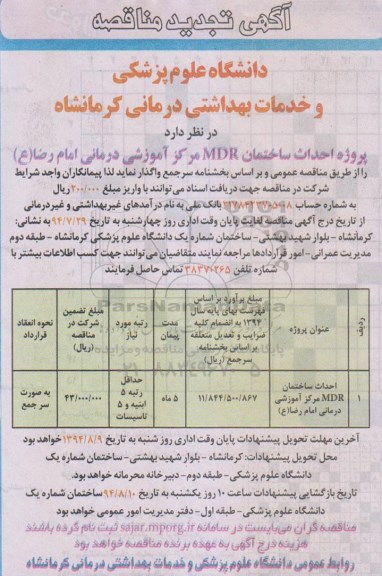 آگهی تجدید مناقصه
دانشگاه علوم پزشکی
و خدمات بهداشتی درمانی کرمانشاه
در نظر دارد
پروژه احداث ساختمان MDR مرکز آموزشی درمانی امام رضا(ع)
را از طریق مناقصه عمومی و بر اساس بخشنامه سرجمع واگذار نماید لذا پیمانکاران واجد شرایط
شرکت در مناقصه جهت دریافت اسناد می توانند با واریز مبلغ ۲۰۰/۰۰۰ریال
به شماره حساب بانک ملی به نام درآمدهای غیربهداشتی و غیردرمانی
از تاریخ درج آگهی مناقصه لغایت پایان وقت اداری روز چهارشنبه به تاریخ ۹۴/۷/۲۹ به نشانی:
کرمانشاه - بلوار شهید بهشتی - ساختمان شماره یک دانشگاه علوم پزشکی کرمانشاه - طبقه دوم
مدیریت عمرانی - امور قراردادها مراجعه نمایند متقاضیان می توانند جهت کسب اطلاعات بیشتر با
شماره تلفن ۳۸۳۷۰۲۶۵ تماس حاصل فرمایند
ردیف
عنوان پروژه
مبلغ برآورد بر اساس فهرست بهای پایه سال ۱۳۹۴ به انضمام کلیه ضرایب و تعدیل متعلقه براساس بخشنامه سرجمع (ریال)
مدت پیمان
رتبه مورد نیاز
مبلغ تضمین شرکت در مناقصه (ریال)
نحوه انعقاد قرارداد
۱
احداث ساختمان MDR مرکز آموزشی درمانی امام رضا(ع)
۱۱/۸۴۴/۵۰۰/۸۶۷
۵ ماه
حداقل رتبه ۵ ابنیه و ۵ تاسیسات
۴۳/۰۰۰/۰۰۰
به صورت سر جمع
آخرین مهلت تحویل پیشنهادات پایان وقت اداری روز شنبه به تاریخ ۱۳۹۴/۸/۹ خواهد بود
محل تحویل پیشنهادات: کرمانشاه - بلوار شهید بهشتی - ساختمان شماره یک
دانشگاه علوم پزشکی - طبقه دوم - دبیرخانه محرمانه خواهد بود.
تاریخ بازگشایی پیشنهادات ساعت ۱۰ روز یکشنبه به تاریخ ۹۴/۸/۱۰ ساختمان شماره یک
دانشگاه علوم پزشکی - طبقه اول - دفتر مدیریت امور عمومی خواهد بود
مناقصه گران می بایست در سامانه sajar.mporg.ir ثبت نام کرده باشند
هزینه درج آگهی به عهده برنده مناقصه خواهد بود
روابط عمومی دانشگاه علوم پزشکی و خدمات بهداشتی درمانی کرمانشاه